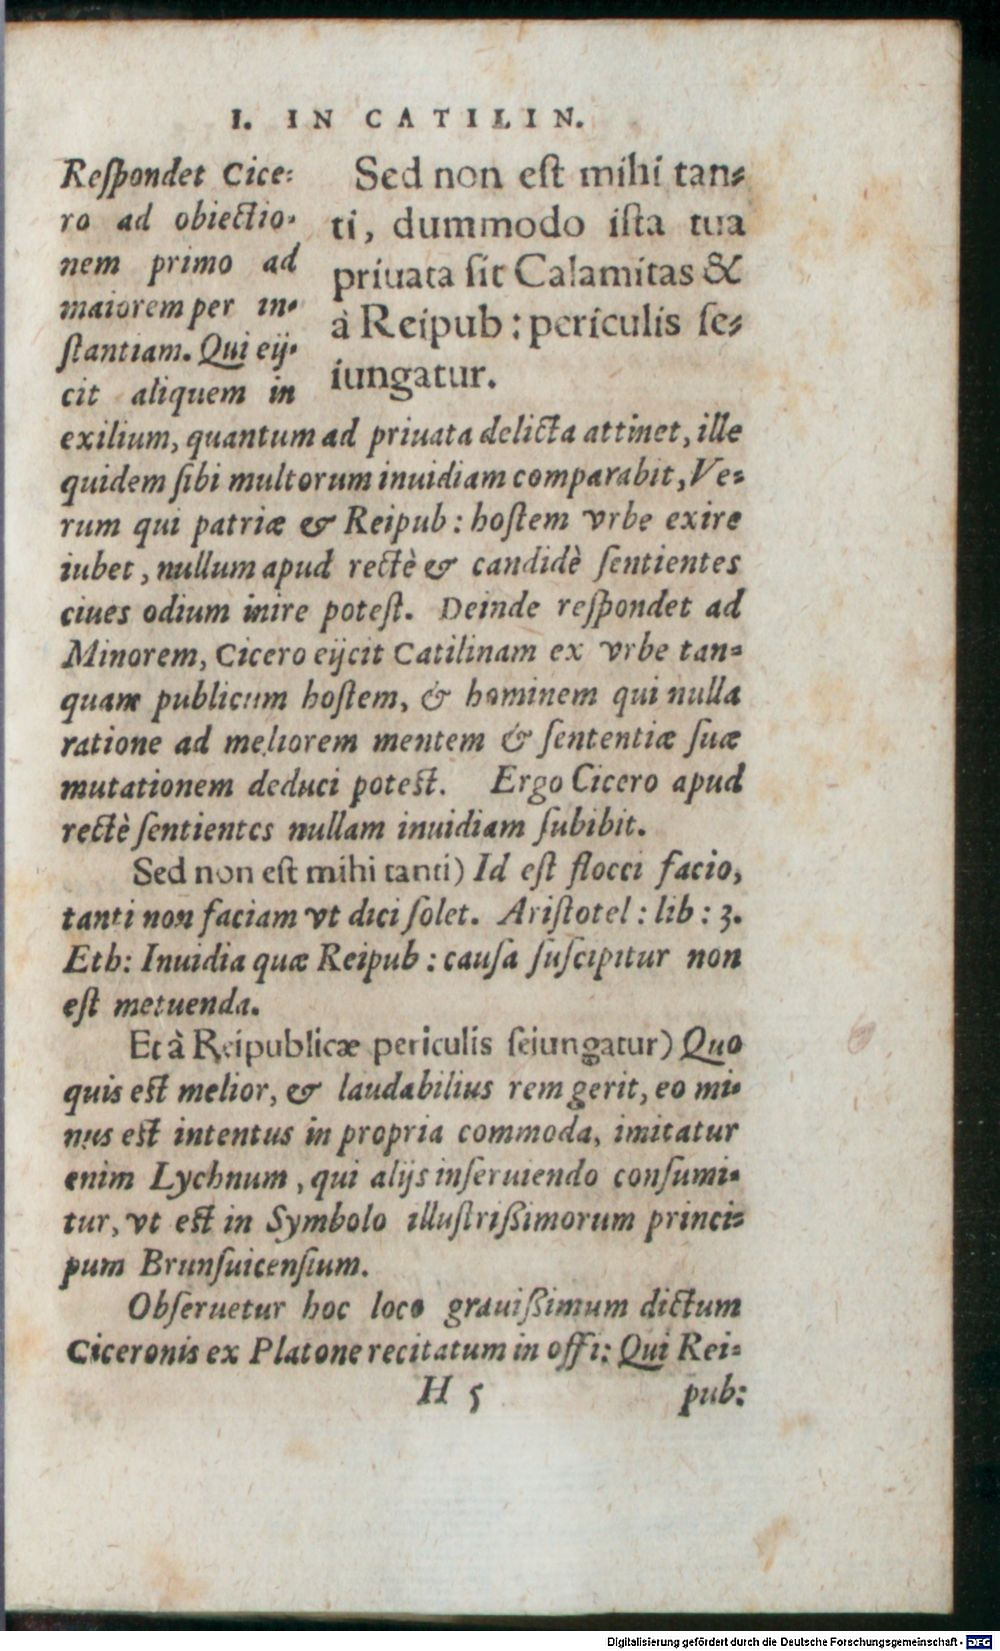 I. IN CATILIN.
Sed non est mihi tan⸗
ti, dummodo ista tua
priuata sit Calamitas &
à Reipub: periculis se⸗
iungatur.
Respondet Cice⸗
ro ad obiectio⸗
nem primo ad
maiorem per in⸗
stantiam. Qui eij⸗
cit aliquem in
exilium, quantum ad priuata delicta attinet, ille
quidem sibi multorum inuidiam comparabit, Ve⸗
rum qui patriæ & Reipub: hostem vrbe exire
iubet, nullum apud rectè & candidè sentientes
ciues odium inire potest. Deinde respondet ad
Minorem, Cicero eijcit Catilinam ex vrbe tan⸗
quam publicum hostem, & hominem qui nulla
ratione ad meliorem mentem & sententiæ suæ
mutationem deduci potest. Ergo Cicero apud
rectè sentientes nullam inuidiam subibit.
Sed non est mihi tanti) Id est flocci facio,
tanti non faciam vt dici solet. Aristotel: lib: 3.
Eth: Inuidia quæ Reipub: causa suscipitur non
est metuenda.
Et à Reipublicæ periculis seiungatur) Quo
quis est melior, & laudabilius rem gerit, eo mi⸗
nus est intentus in propria commoda, imitatur
enim Lychnum, qui alijs inseruiendo consumi⸗
tur, vt est in Symbolo illustrißimorum princi⸗
pum Brunsuicensium.
Obseruetur hoc loco grauißimum dictum
Ciceronis ex Platone recitatum in offi: Qui Rei⸗
H 5 pub:
Digitalisierung gefördert durch die Deutsche Forschungsgemeinschaft - DFG